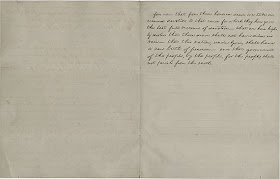 fore us— that from these honored dead we take in-
creased devotion to that cause for which they here gave
the last full measure of devotion— that we here highly
resolve that these dead shall not have died in
vain that this nation, under God, shall have
a new birth of freedom and that government
of the people, by the people, for the people, shall
not perish from the earth.